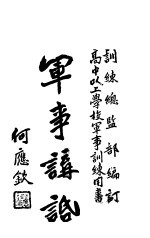 訓練總監部編訂
高中以上學校軍事訓練用書
軍事講話
何應欽